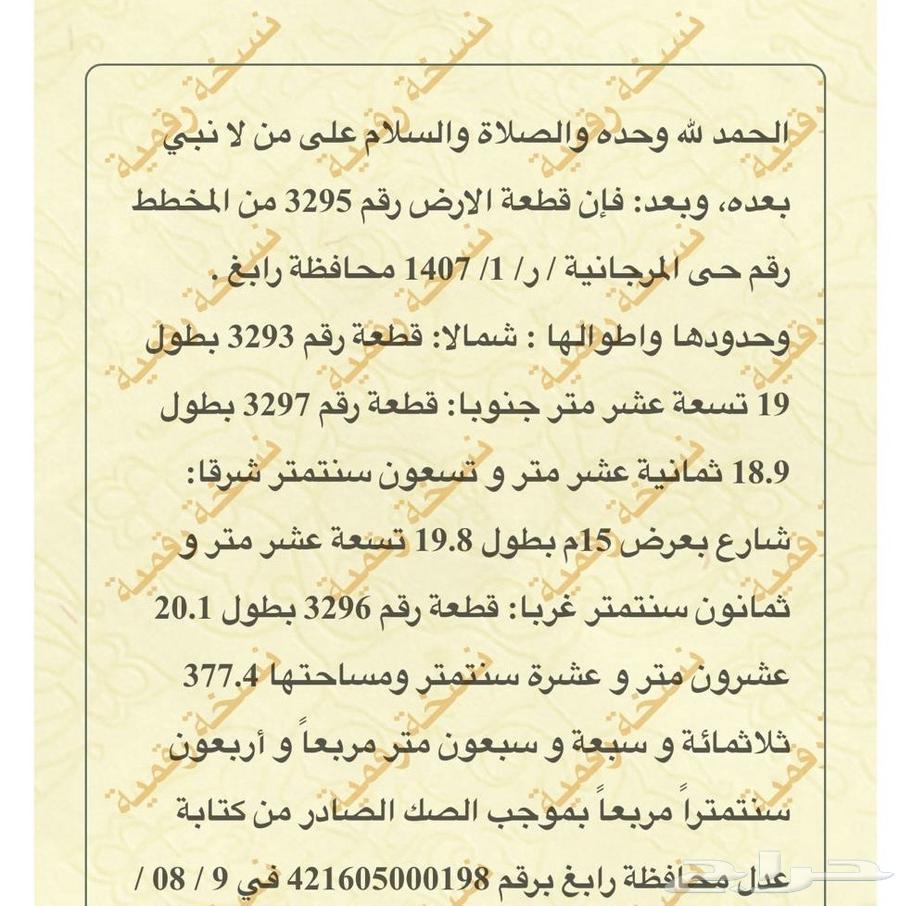 الحمد لله وحده والصلاة والسلام على من لا نبي
بعده، وبعد: فإن قطعة الارض رقم 3295 من المخطط
رقم حى المرجانية / ر/ 1/ 1407 محافظة رابغ .
وحدودها واطوالها : شمالا: قطعة رقم 3293 بطول
19 تسعة عشر متر جنوبا: قطعة رقم 3297 بطول
18.9 ثمانية عشر متر و تسعون سنتمتر شرقا:
شارع بعرض 15م بطول 19.8 تسعة عشر متر و
ثمانون سنتمتر غربا: قطعة رقم 3296 بطول 20.1
عشرون متر و عشرة سنتمتر ومساحتها 377.4
ثلاثمائة و سبعة و سبعون متر مربعاً و أربعون
سنتمتراً مربعاً بموجب الصك الصادر من كتابة
عدل محافظة رابغ برقم 421605000198 في 9 / 08 /
نسخة رقمية
حراج